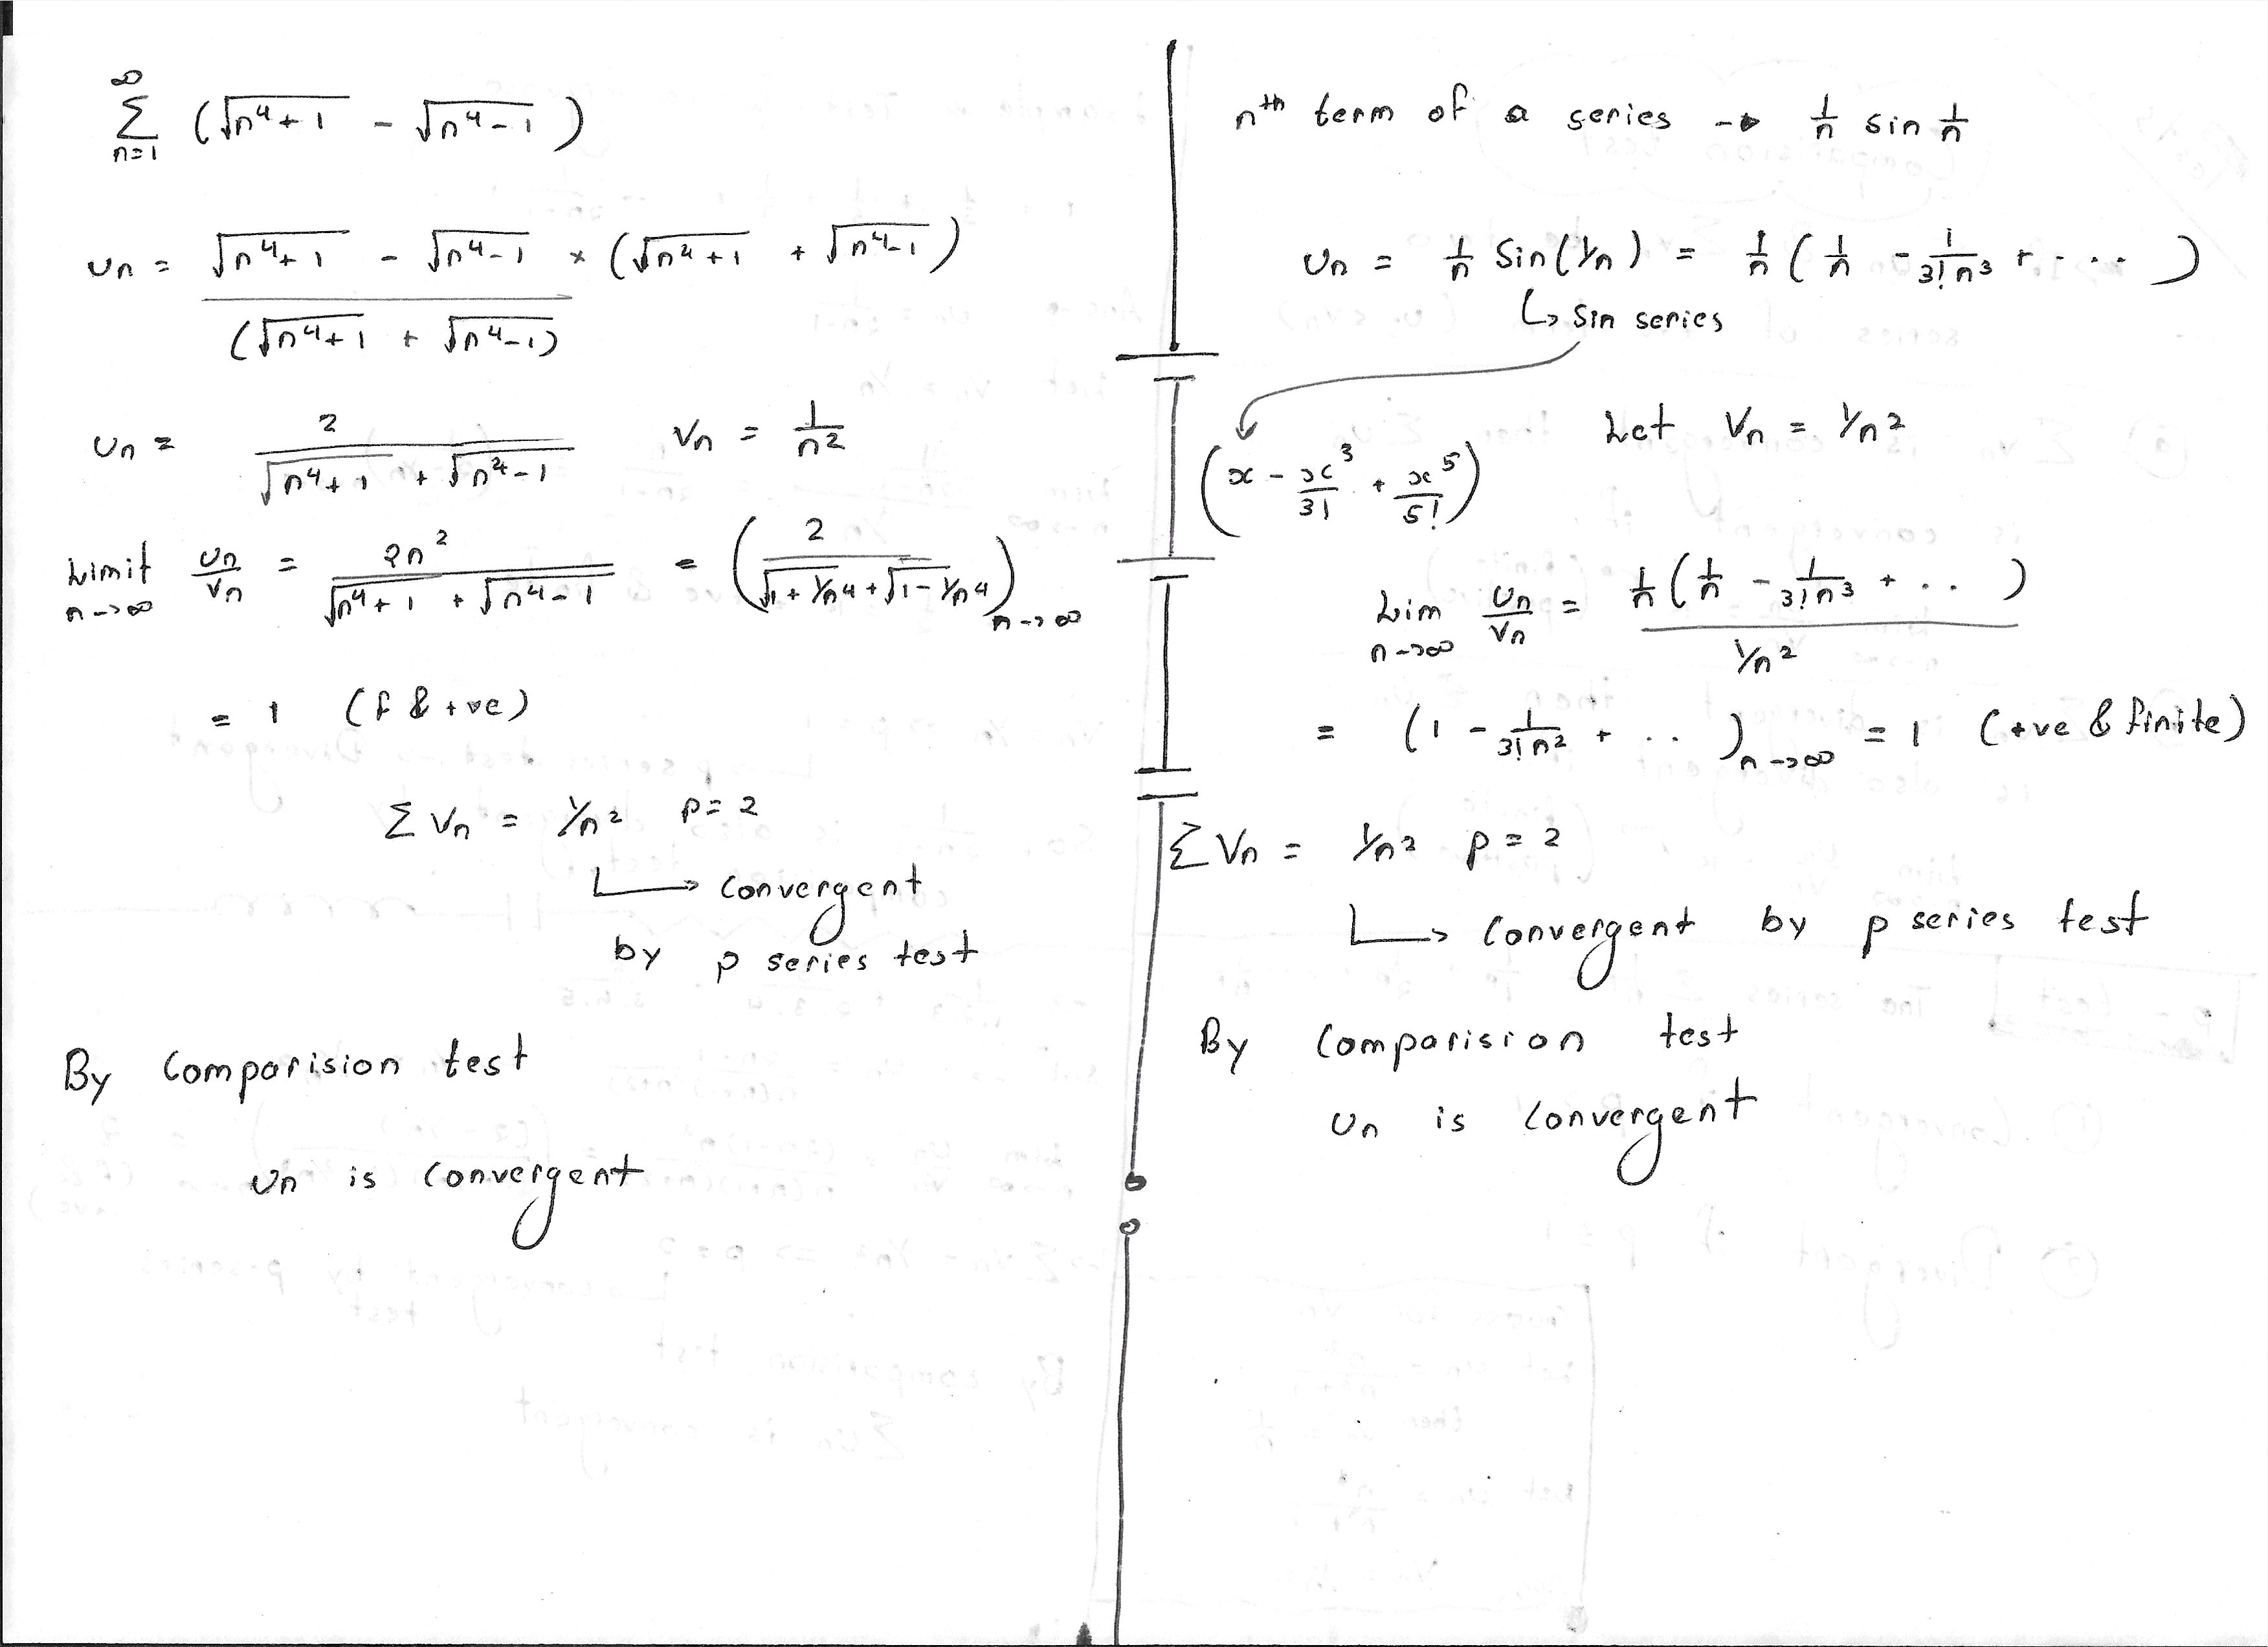 ∞
Σ (√n⁴+1 - √n⁴-1)
n=1
un = √n⁴+1 - √n⁴-1 × (√n⁴+1 + √n⁴-1)
(√n⁴+1 + √n⁴-1)
un = 2 / √n⁴+1 + √n⁴-1    Vn = 1/n²
Limit n->∞ un/vn = 2n² / √n⁴+1 + √n⁴-1 = (2 / √1+1/n⁴ + √1-1/n⁴) n->∞
= 1 (f & +ve)
Σ Vn = 1/n² p=2
↳ convergent
by p series test
By Comparision test
un is convergent
nth term of a series -> 1/n sin 1/n
Un = 1/n Sin(1/n) = 1/n (1/n - 1/3!n³ + ....)
↳ Sin series
Let Vn = 1/n²
(x - x³/3! + x⁵/5!)
Lim n->∞ Un/Vn = 1/n (1/n - 1/3!n³ + ..) / 1/n²
= (1 - 1/3!n² + ..) n->∞ = 1 (+ve & finite)
Σ Vn = 1/n² p = 2
↳ Convergent by p series test
By Comparision test
Un is Convergent